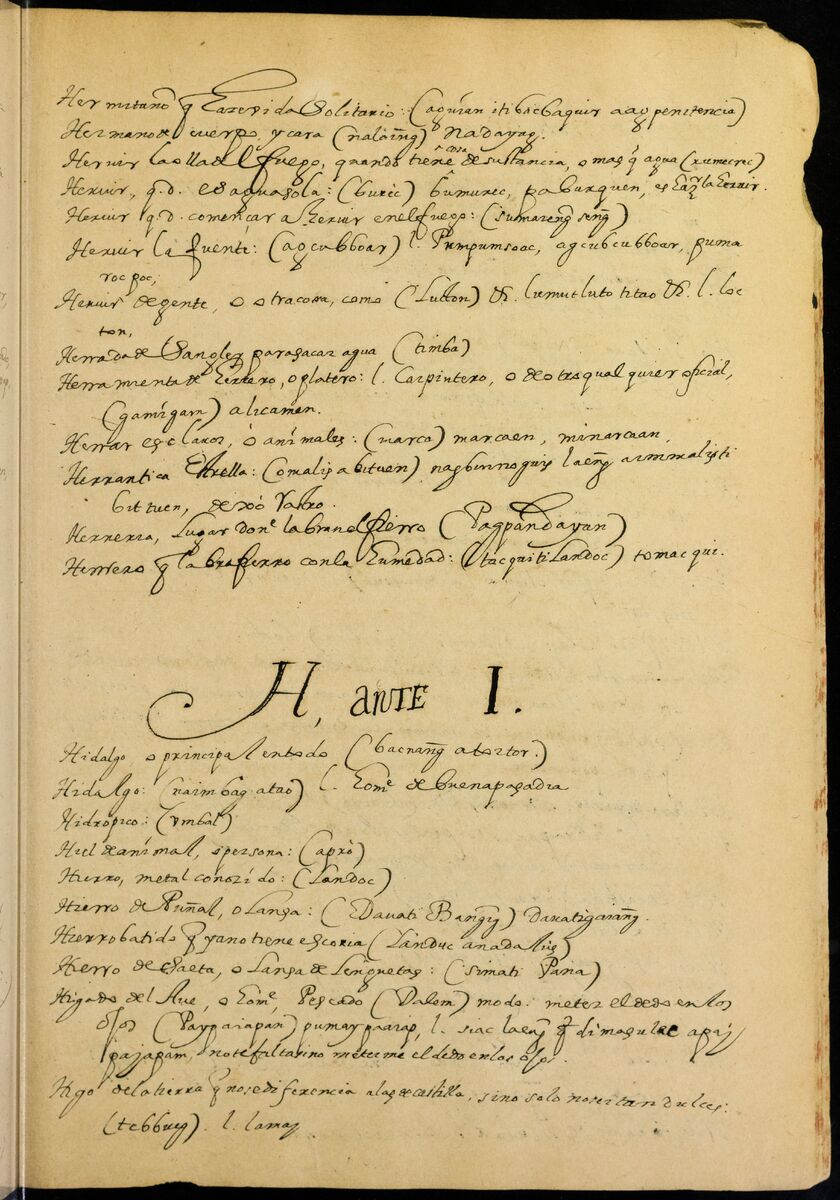 Hermitaño q̃ haze vida Solitario: (aguían iti bac baquir a ag penitencia)
Hermano de cuerpo, y cara (nalaing̃) nadayag.
Hervir la olla del fuego, quando tiene cosa de sustancia, o mas q̃ agua (rumecrec)
Hervir, q.d. es agua sola: (buríc) bumurec, paburquen, es hazerla hervir.
Hervir q.d. començar a hervir en el fuego: (sumaring̃ sing̃)
Hervir la fuente: (agcubboar) l. Pumpumsoac, agcubcubboar, puma
roc poc,
Hervir de gente, o otra cossa, como (Lutton) &. lumutluto titao &. l. loc
ton,
Herrada de Sangley para sacar agua (timba)
Herramienta de herrero, o platero: l. Carpintero, o de otra qual quier oficial,
(gamígam) alicamen.
Herrar esclavos, ò anímales: (marca) marcaen, minarcaan,
Herrantica Estrella: (omalis a bituen) nagbinnoquig laeng̃ aimmalisti
bittuen, de xò Rastro.
Herreria, Lugar donẽ labran el fierro (Pagpandayan)
Herrero q̃ labra fierro con la humedad: (tacquiti Landoc) tomac qui.
H, ante I.
Hidalgo, o principal en todo (bacnang̃ a toitor.)
Hidalgo: (naimbag atao) l. homẽ de buena pasadia
Hidropico: (ymbal)
Hiel de anímal, o persona: (aprò)
Hierro, metal conozído: (Landoc)
Hierro de Puñal, o Lansa: (Davati Bang̃ig)
Hierro batido q̃ ya no tiene escoria (Lánduc anadalus)
Hierro de Saeta, o Lansa de Lenguetas: (simati Pana)
Higado del Ave, o homẽ, Pescado (Dalem) modo: meter el dedo en los
ojos (Paypaiapan) l. siac laeng̃
no te faltarino meterme el dedo en los ojos.
Higo de la tierra q̃ no se diferencia a las de castilla, sino solo no ser tan dulces:
(tebbueg). l. lamay